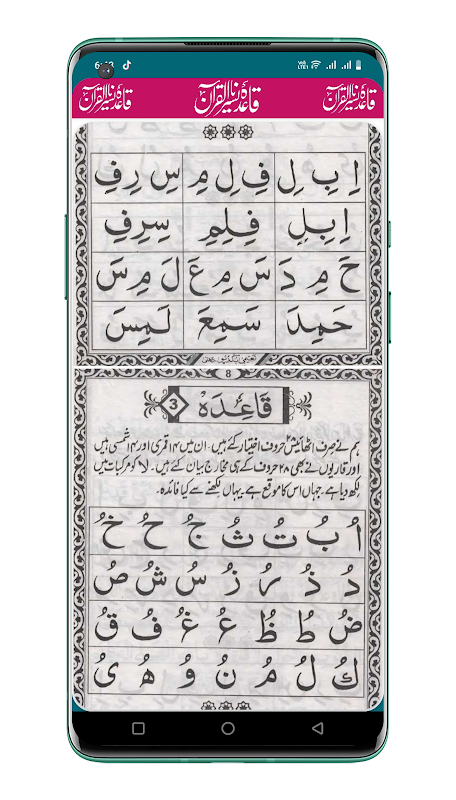 قاعدہ یسرنا القرآن قاعدہ یسرنا القرآن قاعدہ یسرنا القرآن
اِ بِ لِ فِ لِ مِ سِ رِ فِ
اِبِلِ فِلِمِ سِرِفِ
حَ مِ دَ سَ مِ عَ لَ مِ سَ
حَمِدَ سَمِعَ لَمِسَ
8
قَاعِدَہ 3
ہم نے صرف اٹھائیس حروف اختیار کئے ہیں۔ ان میں ۱۴ قمری اور ۱۴ شمسی ہیں
اور قاریوں نے بھی ۲۸ حروف کے ہی مخارج بیان کئے ہیں۔ لا کو مرکبات میں
لکھ دیا ہے۔ جہاں اس کا موقع ہے یہاں لکھنے سے کیا فائدہ۔
اُ بُ تُ ثُ جُ حُ خُ
دُ ذُ رُ زُ سُ شُ صُ
ضُ طُ ظُ عُ غُ فُ قُ
كُ لُ مُ نُ وُ هُ ىُ